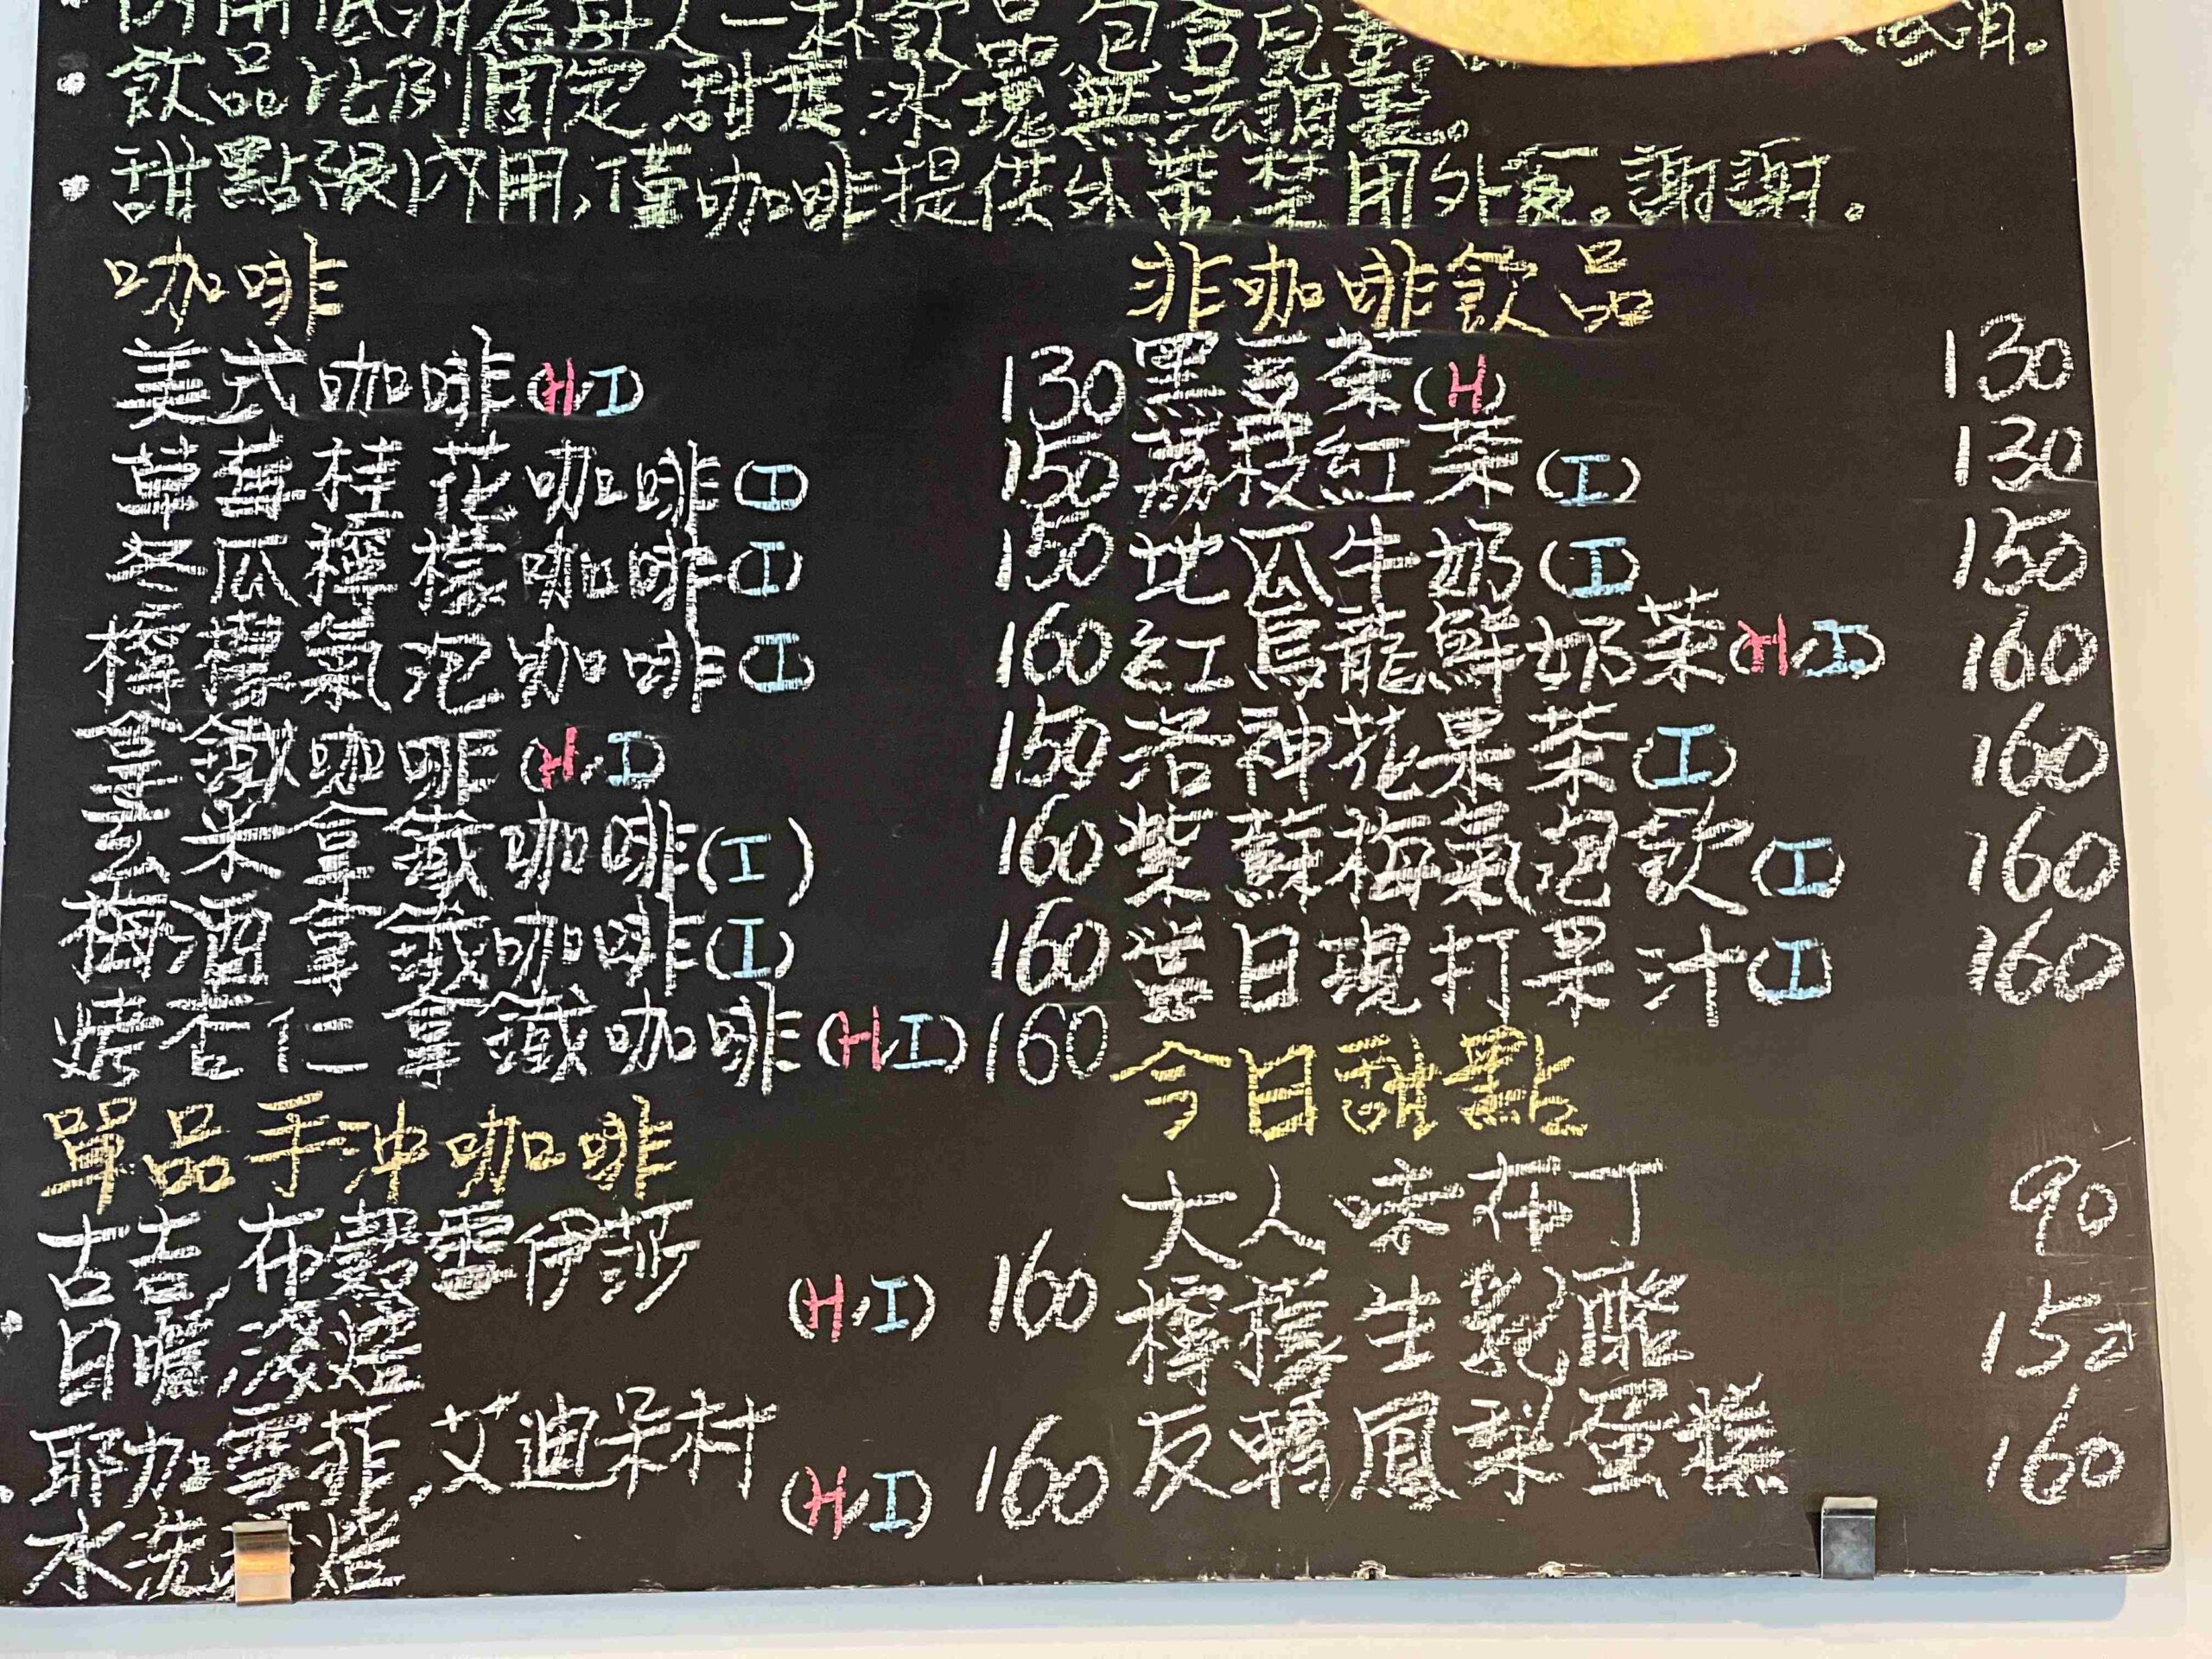 內用低消為每人一杯飲品,包含兒童。 低消。
飲品比例固定,甜度冰塊無法調整。
甜點限內用,僅咖啡提供外帶,禁用外食。謝謝.
咖啡
美式咖啡(H/I) 130
草莓桂花咖啡(I) 150
冬瓜檸檬咖啡(I) 150
檸檬氣泡咖啡(I) 160
拿鐵咖啡(H/I) 150
玄米拿鐵咖啡(I) 160
梅酒拿鐵咖啡(I) 160
烤杏仁拿鐵咖啡(H/I) 160
單品手沖咖啡
古吉,布穀雷伊莎
(H/I) 160
日曬,淺焙
耶加雪菲,艾迪朵村
(H/I) 160
水洗 焙
非咖啡飲品
黑豆茶(H) 130
荔枝紅茶(I) 130
地瓜牛奶(I) 150
紅烏龍鮮奶茶(H/I) 160
洛神花果茶(I) 160
紫蘇梅氣泡飲(I) 160
當日現打果汁(I) 160
今日甜點
大人味布丁 90
檸檬生乳酪 150
反轉鳳梨蛋糕 160